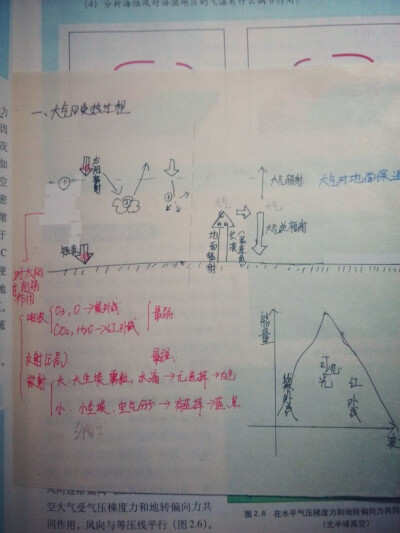 (4) 分析海陆风对海滨地区的气温有什么调节作用
一、大气的受热过程
太阳辐射
大气辐射
大气对地面保温
大气
大气逆辐射
地面辐射
长波
短波
对太阳
削弱作用
吸收
O3, O → 紫外线
CO2, H2O → 红外线
最弱
反射(云层)
最强
散射
大:大尘埃 雾粒,水滴 → 无选择 → 白色
小:小尘埃、空气分子 → 有选择 → 蓝、紫
能量
紫外线
可见光
红外线
空大气受气压梯度力和地转偏向力共
同作用,风向与等压线平行(图2.6)。
图2.6 在水平气压梯度力和地转偏向力共同
(北半球高空)